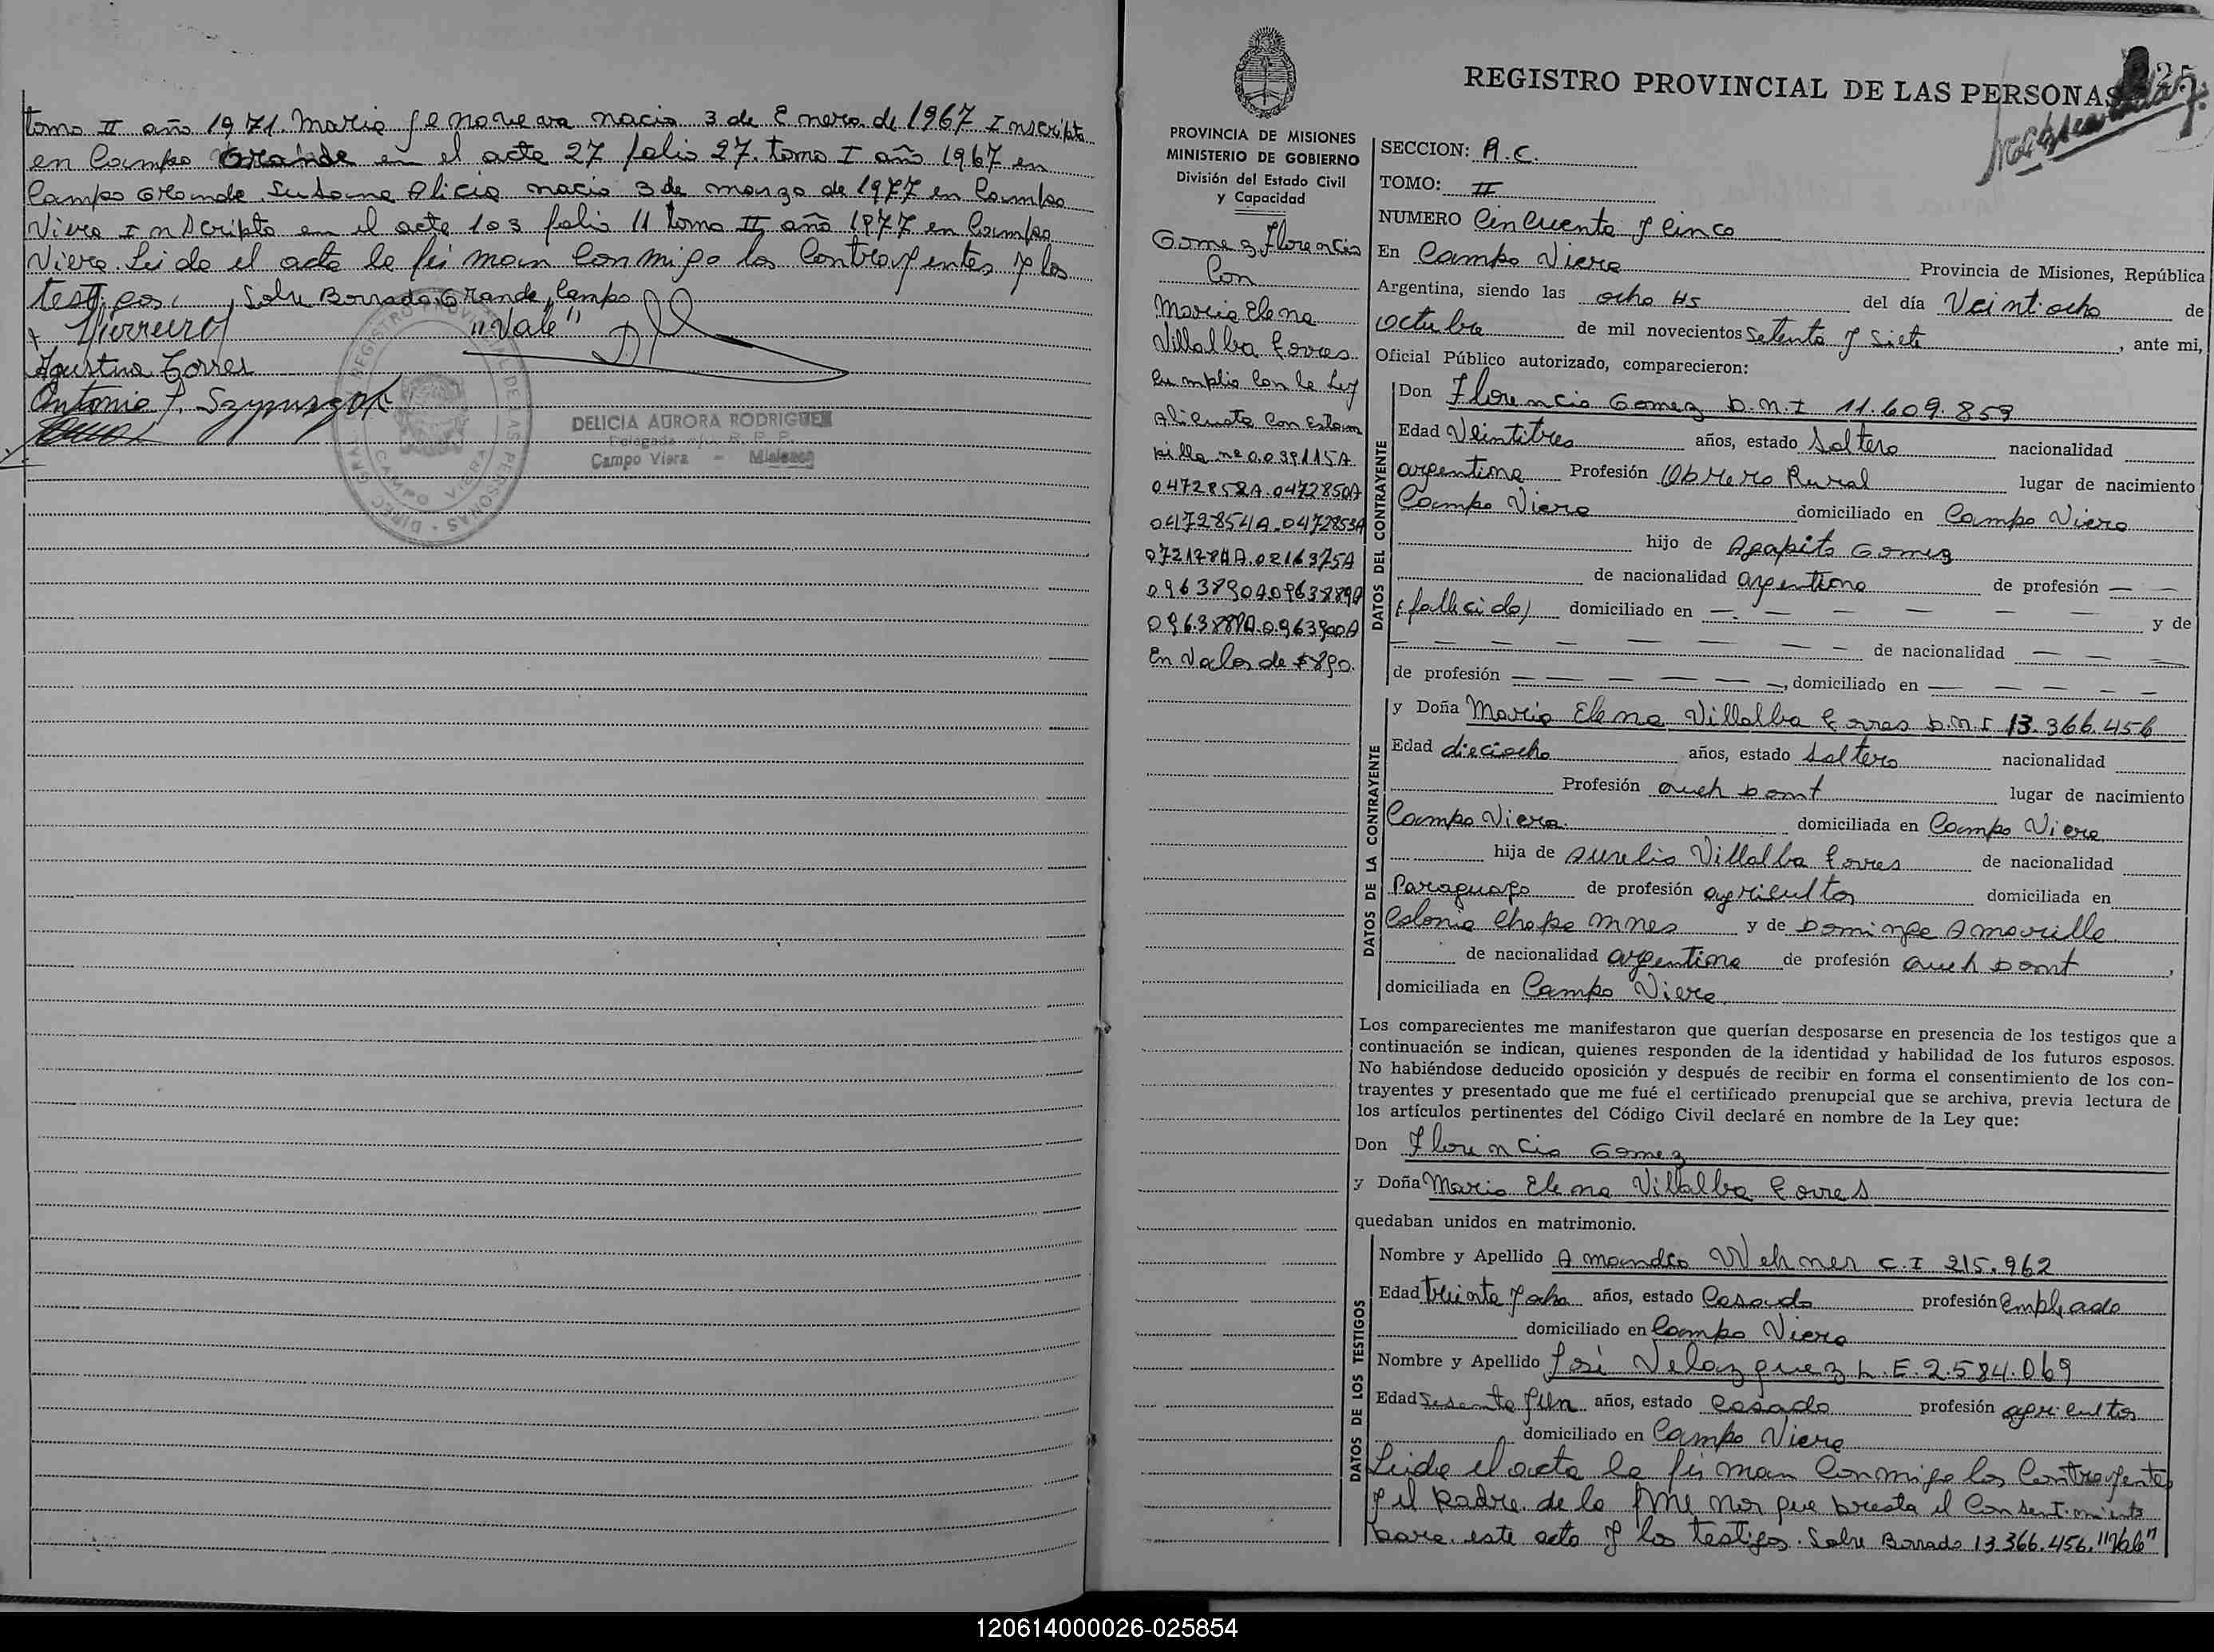 tomo II año 1971. Maria Genoveva nacio 3 de Enero de 1967 Inscripta
en Campo Grande en el acta 27 folio 27. tomo I año 1967 en
Campo Grande. Susana Alicia nacio 3 de marzo de 1977 en Campo
Viera Inscripta en el acta 103 folio 11 tomo II año 1977 en Campo
Viera. Leida el acta la firman conmigo los Contrayentes y los
testigos. Sobre Borrado Grande, Campo
"Vale"
Agustina Torres
Antonio
DELICIA AURORA RODRIGUEZ
Delegada R. P. P.
Campo Viera - Misiones
REGISTRO PROVINCIAL DE LAS PERSONAS
CAMPO VIERA
REGISTRO PROVINCIAL DE LAS PERSONAS
25
PROVINCIA DE MISIONES
MINISTERIO DE GOBIERNO
División del Estado Civil
y Capacidad
Gomez Florencio
Con
Maria Elena
Villalba Torres
Cumplio con la Ley
Alicuota con Estam
pilla nº 0039115A
0472852A.0472850A
0472854A.0472853A
0721784A.0216375A
0963890A0963889A
0963888A.0963900A
En Valor de $890.
SECCION: A.C.
TOMO: II
NUMERO Cincuenta y Cinco
En Campo Viera Provincia de Misiones, República
Argentina, siendo las ocho Hs del día Veintiocho de
octubre de mil novecientos Setenta y Siete, ante mi,
Oficial Público autorizado, comparecieron:
DATOS DEL CONTRAYENTE
Don Florencio Gomez D.N.I 11.609.859
Edad Veintitres años, estado Soltero nacionalidad
argentina Profesión Obrero Rural lugar de nacimiento
Campo Viera domiciliado en Campo Viera
hijo de Agapito Gomez
de nacionalidad argentina de profesión — —
(fallecido) domiciliado en — — — — — — y de
— — — — — — — — de nacionalidad — — —
de profesión — — — — — —, domiciliado en — — — — —
DATOS DE LA CONTRAYENTE
y Doña Maria Elena Villalba Torres D.N.I 13.366.456
Edad dieciocho años, estado Soltera nacionalidad
Profesión queh Domt lugar de nacimiento
Campo Viera. domiciliada en Campo Viera
hija de Aurelio Villalba Torres de nacionalidad
Paraguayo de profesión agricultor domiciliada en
Colonia Chapa mnes y de Dominga Amarilla
de nacionalidad argentina de profesión queh Domt,
domiciliada en Campo Viera
Los comparecientes me manifestaron que querían desposarse en presencia de los testigos que a
continuación se indican, quienes responden de la identidad y habilidad de los futuros esposos.
No habiéndose deducido oposición y después de recibir en forma el consentimiento de los con-
trayentes y presentado que me fué el certificado prenupcial que se archiva, previa lectura de
los artículos pertinentes del Código Civil declaré en nombre de la Ley que:
Don Florencio Gomez
y Doña Maria Elena Villalba Torres
quedaban unidos en matrimonio.
DATOS DE LOS TESTIGOS
Nombre y Apellido Amandio Wehner C.I 215.962
Edad treinta y ocho años, estado Casado profesión Empleado
domiciliado en Campo Viera
Nombre y Apellido José Velazquez L.E.2.584.069
Edad Sesenta y Un años, estado Casado profesión agricultor
domiciliado en Campo Viera
Leida el acta la firman conmigo los Contrayentes
y el padre de la menor que presta el Consentimiento
para este acto y los testigos. Sobre Borrado 13.366.456, "Vale"
120614000026-025854